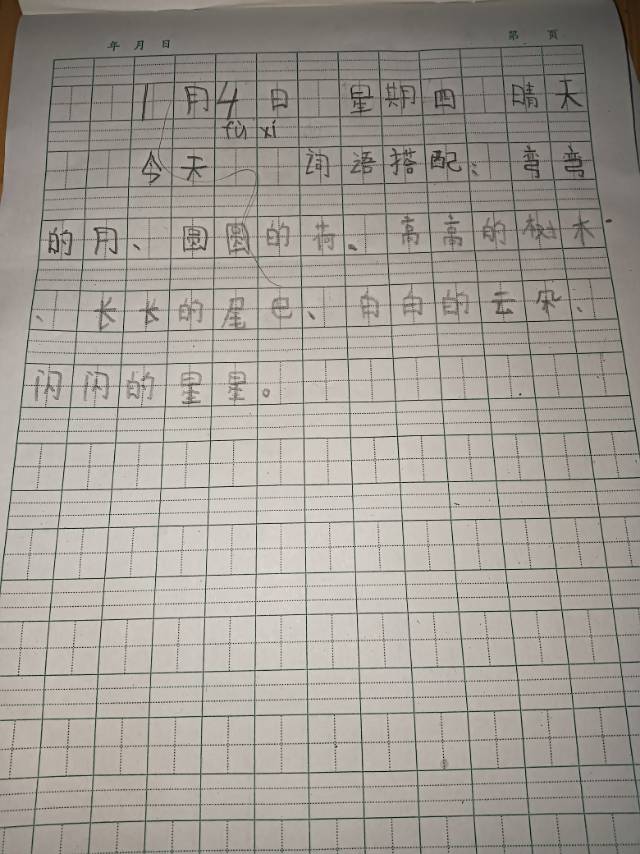 年 月 日 第 页
1月4日 星期四 晴天
fù xí
今天 词语搭配：弯弯
的月、圆圆的荷、高高的树木
、长长的尾巴、白白的云朵、
闪闪的星星。